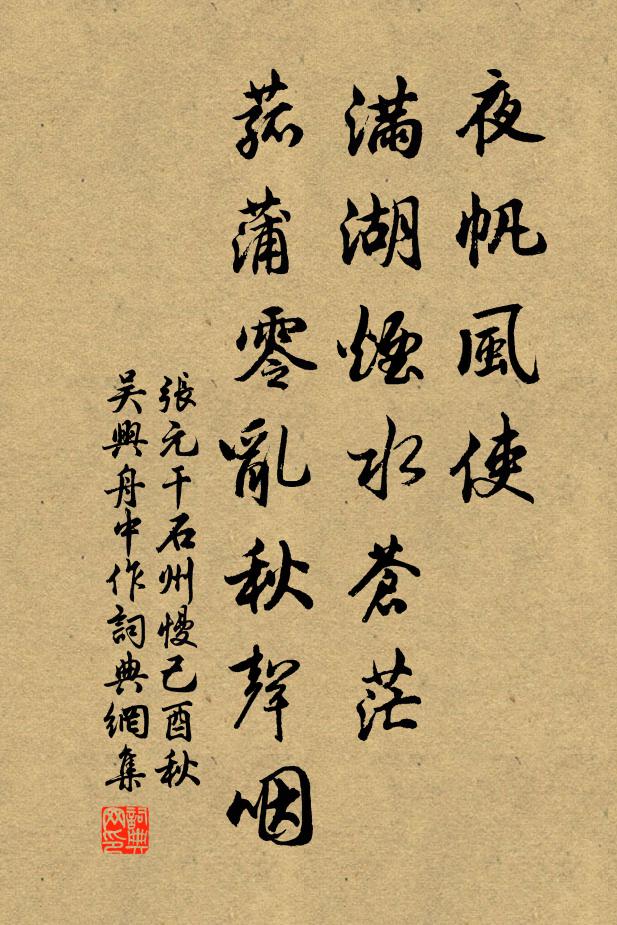 夜帆風使
滿湖煙水蒼茫
菰蒲零亂秋聲咽
張元干石州慢己酉秋
吴興舟中作詞典網集
詞典网印